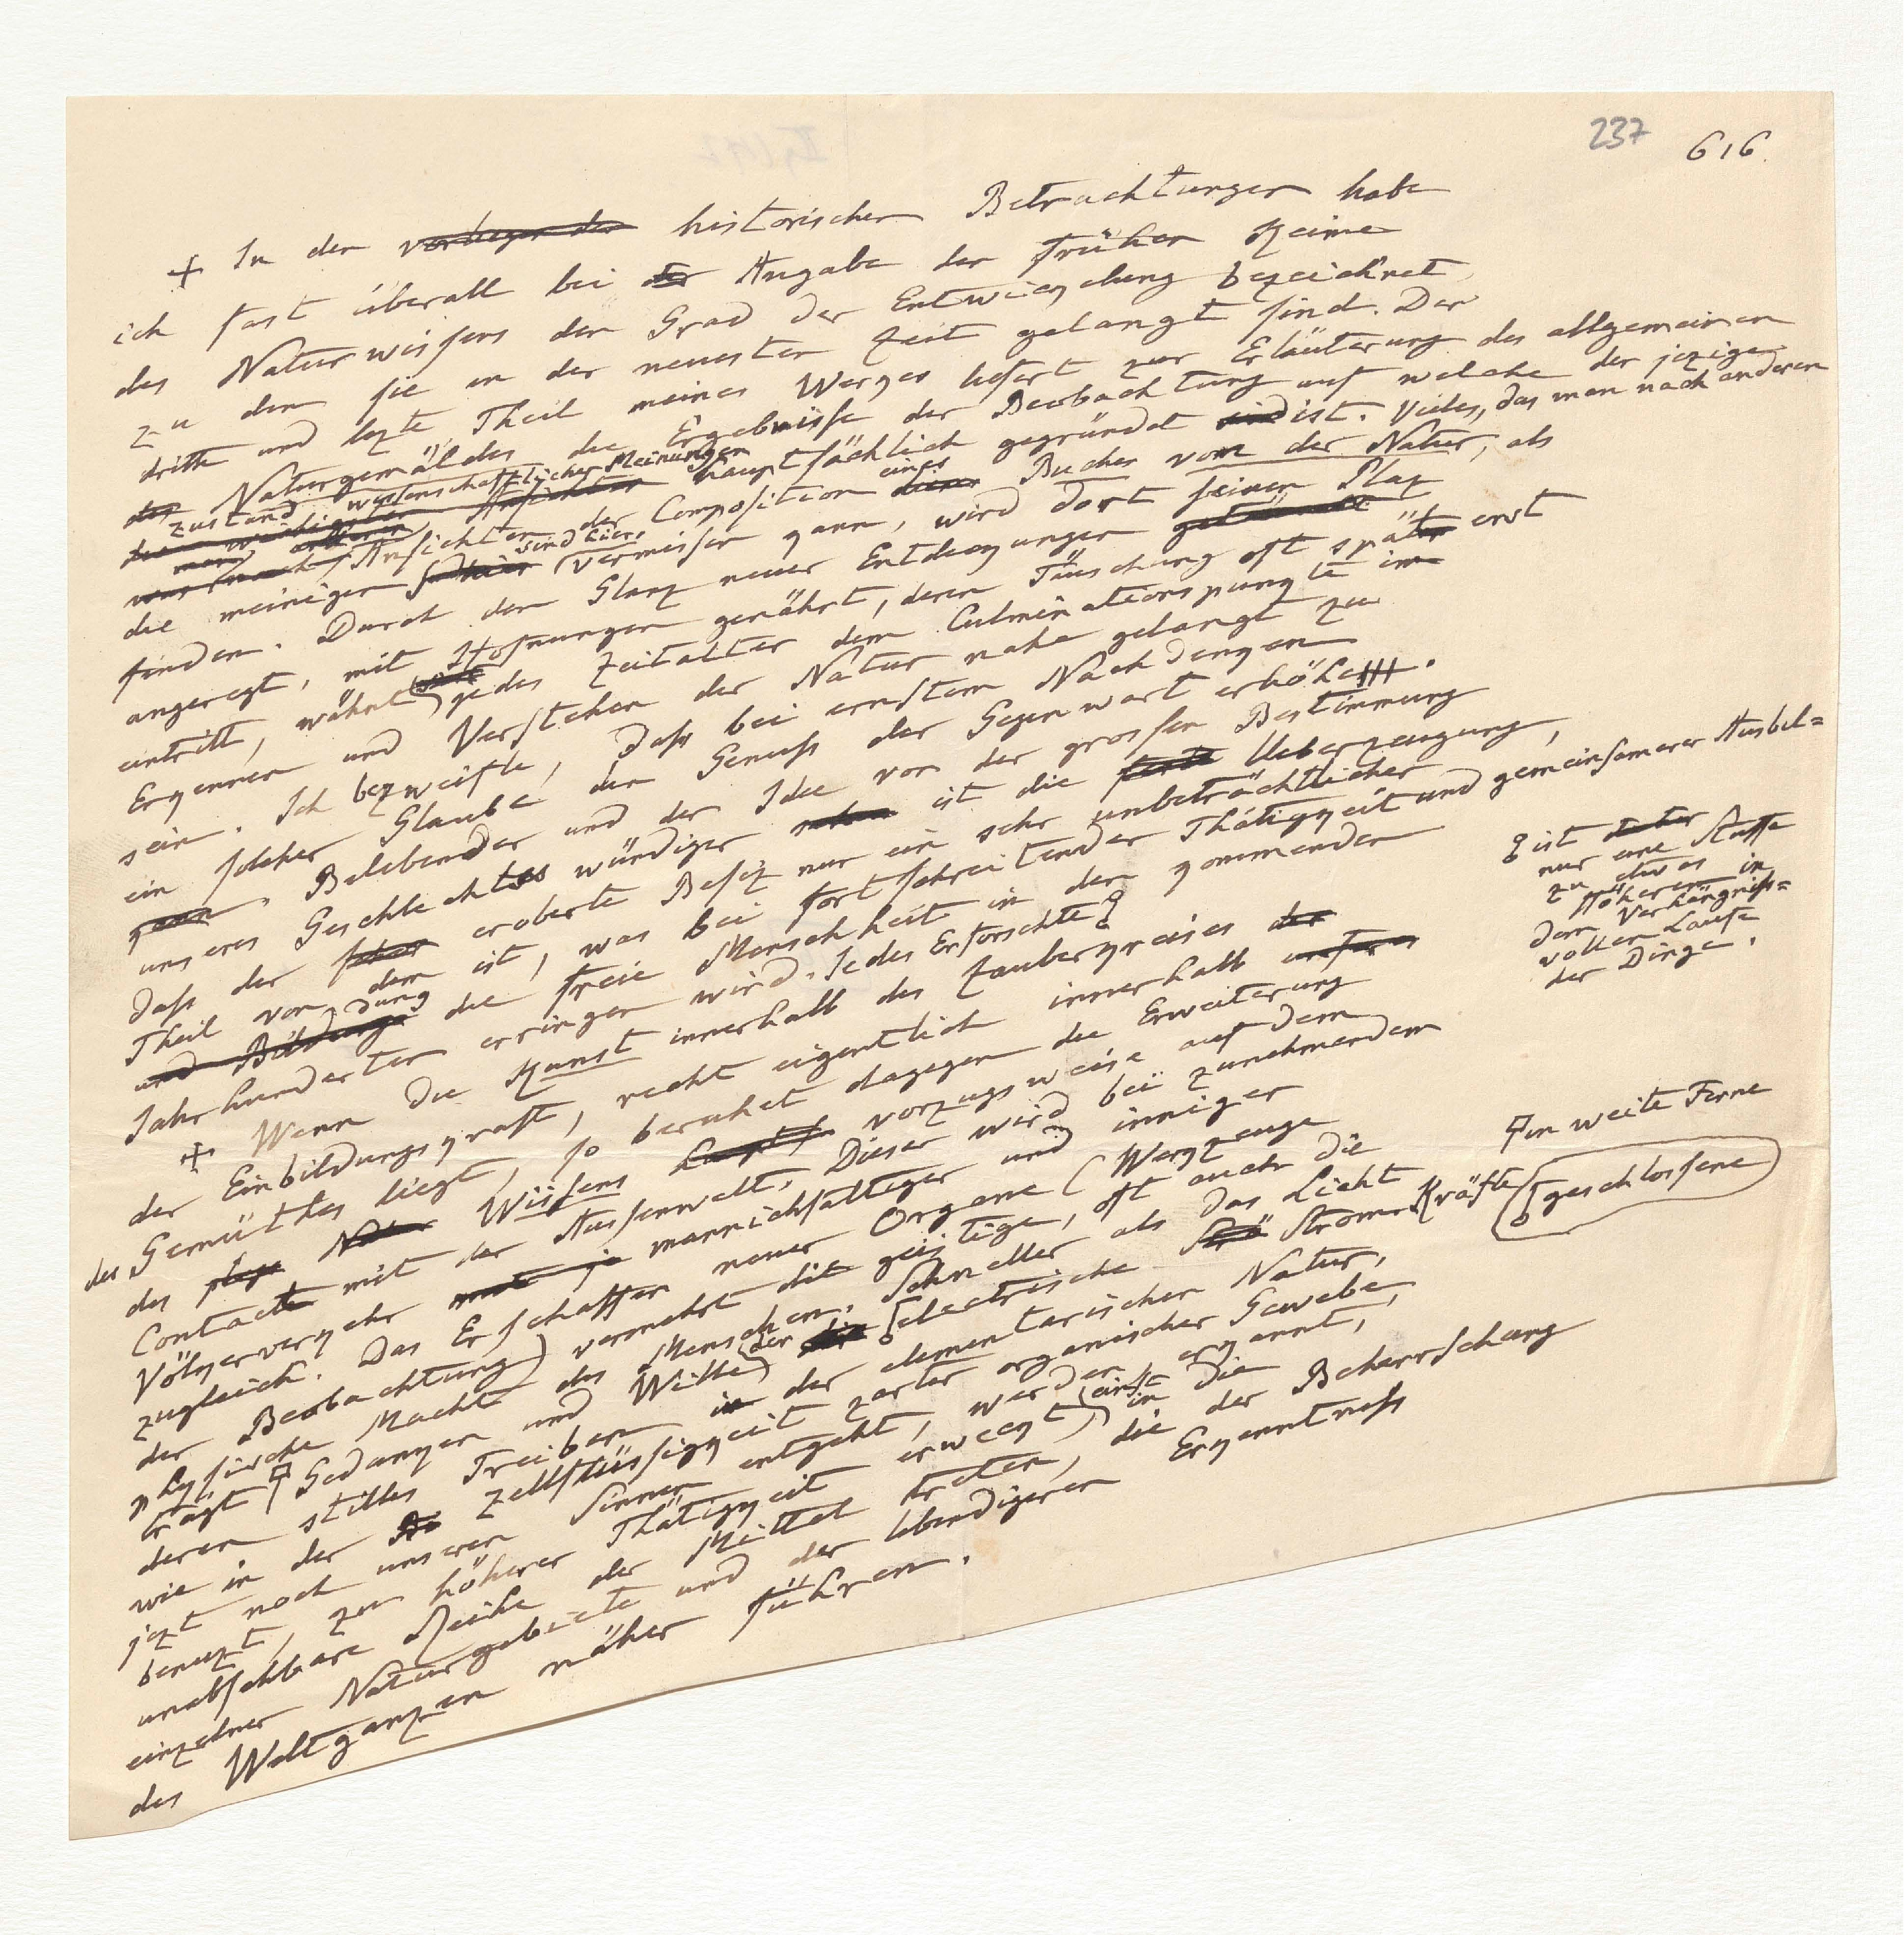 237
616.
+ In den vorliegenden historischen Betrachtungen habe
ich fast überall bei der Angabe der frühen Keime
des Naturwissens den Grad der Entwickelung bezeichnet,
zu dem sie in der neuesten Zeit gelangt sind. Der
dritte und lezte Theil meines Werkes liefert zur Erläuterung des allgemeinen
des Naturgemäldes die Ergebnisse der Beobachtung auf welche der jezige
Zustand wissenschaftlicher Meinungen hauptsächlich gegründet sind ist. Vieles, das man nach anderen
Ansichten der Composition eines Buches von der Natur, als
die meinigen sind hier vermissen kann, wird dort seinen Plaz
finden. Durch den Glanz neuer Entdekungen
angeregt, mit Hofnungen genährt, deren Täuschung oft spät erst
eintritt, wähnt jedes Zeitalter dem Culminationspunkte im
Erkennen und Verstehen der Natur nahe gelangt zu
sein. Ich bezweifle, dass bei ernstem Nachdenken
ein solcher Glaube den Genuss der Gegenwart erhöhe.
Belebender und der Idee von der grossen Bestimmung
unseres Geschlechtes würdiger ist die Ueberzeugung,
dass der eroberte Besiz nur ein sehr unbeträchtlicher
Theil von dem ist, was bei fortschreitender Thätigkeit und gemeinsamerer Ausbil=
und Bildung dung die freie Menschheit in den kommenden
Jahrhunderten erringen wird. Jedes Erforschte
ist nur eine Stuffe
zu etwas
Höherem in
dem Verhängniss=
vollen Laufe
der Dinge.
+ Wenn die Kunst innerhalb des Zauberkreises der
der Einbildungskraft, recht eigentlich innerhalb unseres
des Gemüthes liegt, so beruhet dagegen die Erweiterung
des Wissens vorzugsweise auf dem
Contacte mit der Aussenwelt. Dieser wird bei zunehmendem
Völkerverkehr mannichfaltiger und inniger
zugleich. Das Erschaffen neuer Organe (Werkzeuge
der Beobachtung) vermehrt die geistige, oft auch die
physische Macht des Menschen. Schneller als das Licht
trägt Gedanken und Willen der electrische Strom. Kräfte
in weite Ferne
geschlossene
deren stilles Treiben in der elementarischen Natur,
wie in der Zellflüssigkeit zarter organischer Gewebe,
jezt noch unseren Sinnen entgeht, werden erkannt,
benuzt, zu höherer Thätigkeit erwekt, einst in die
unabsehbare Reihe der Mittel treten, die der Beherrschung
einzelner Naturgebiete und der lebendigeren Erkenntniss
des Weltganzen näher führen.